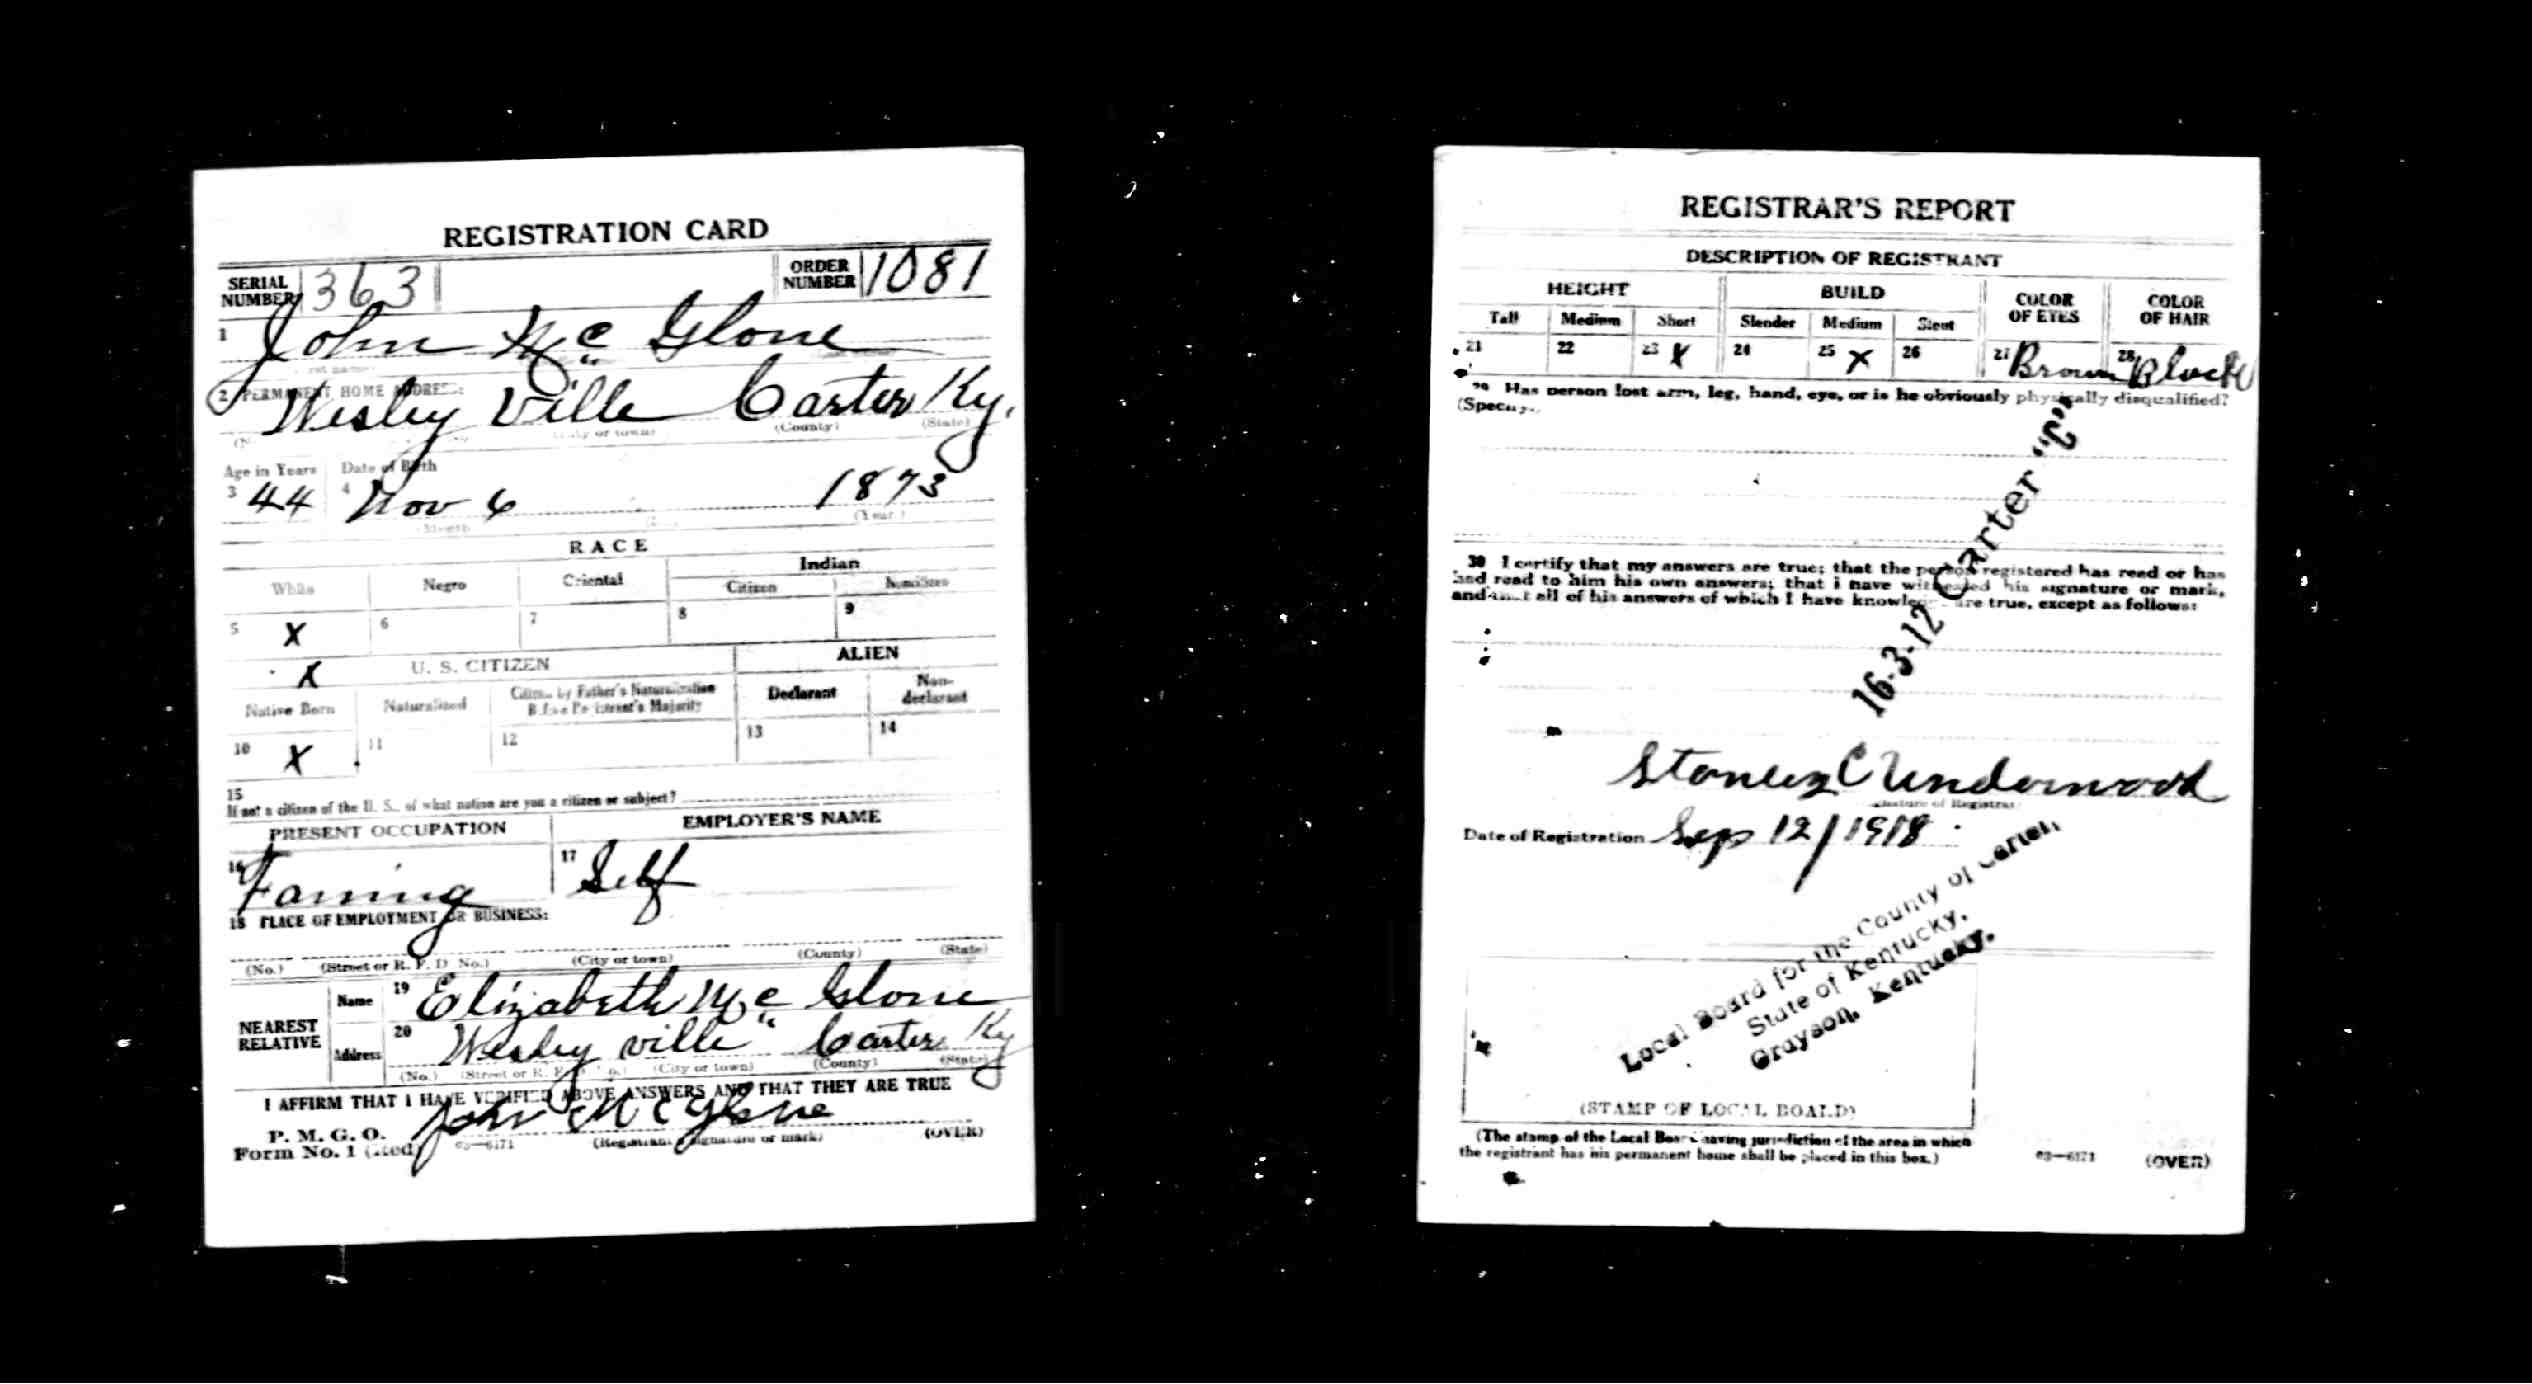 REGISTRATION CARD
SERIAL NUMBER 363
ORDER NUMBER 1081
1 John Mc Glone
2 PERMANENT HOME ADDRESS:
Wesley Ville Carter Ky.
(County) (State)
Age in Years Date of Birth
3 44 4 Nov 6 1873
(Month) (Year)
RACE
White Negro Oriental Indian
Citizen
5 X 6 7 8 9
X U. S. CITIZEN ALIEN
Native Born Naturalized Citizen by Father's Naturalization Before Registrant's Majority Declarant Non-declarant
10 X 11 12 13 14
15
If not a citizen of the U. S., of what nation are you a citizen or subject?
PRESENT OCCUPATION EMPLOYER'S NAME
16 Faming 17 Self
18 PLACE OF EMPLOYMENT OR BUSINESS:
(No.) (Street or R. F. D. No.) (City or town) (County) (State)
NEAREST RELATIVE
Name 19 Elizabeth Mc Glone
Address 20 Wesley ville Carter Ky
(No.) (Street or R. F. D. No.) (City or town) (County) (State)
I AFFIRM THAT I HAVE VERIFIED ABOVE ANSWERS AND THAT THEY ARE TRUE
P. M. G. O.
Form No. 1 (Red) John McGlone
03—6171 (Registrant's signature or mark) (OVER)
REGISTRAR'S REPORT
DESCRIPTION OF REGISTRANT
HEIGHT BUILD COLOR OF EYES COLOR OF HAIR
Tall Medium Short Slender Medium Stout
21 22 23 X 24 25 X 26 27 Brown 28 Black
29 Has person lost arm, leg, hand, eye, or is he obviously physically disqualified?
(Specify.)
30 I certify that my answers are true; that the person registered has read or has
had read to him his own answers; that I have witnessed his signature or mark,
and that all of his answers of which I have knowledge are true, except as follows:
16-3-12 Carter "C"
Stanley C Underwood
(Signature of Registrar)
Date of Registration Sep 12/1918
Local Board for the County of Carter,
State of Kentucky,
Grayson, Kentucky.
(STAMP OF LOCAL BOARD)
(The stamp of the Local Board having jurisdiction of the area in which
the registrant has his permanent home shall be placed in this box.)
03—6171 (OVER)